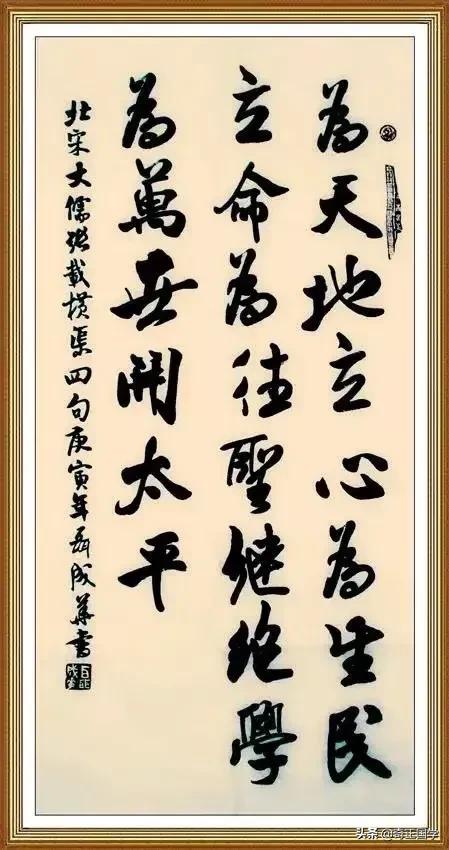 為天地立心為生民
立命為往聖繼絕學
為萬世開太平
北宋大儒張載橫渠四句庚寅年聶成華書
头条 @奇正国学